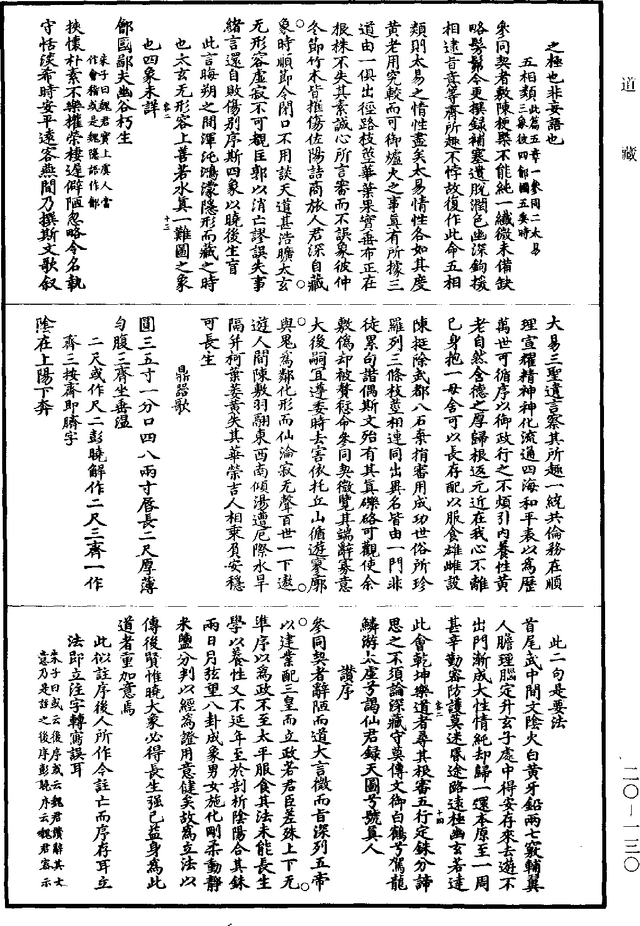 道藏
之極也非妄語也
五相類此篇五章一參同二太易三象彼四鄶國五委時
參同契者敷陳梗槩不能純一纖微未備缺
略髣髴今更撰録補塞遺脫潤色幽深鈎援
相逮旨意等齊所趣不悖故復作此命五相
類則太易之情性盡矣太易情性各如其度
黄老用究較而可御爐火之事真有所據三
道由一俱出徑路枝莖華葉果實垂布正在
根株不失其素誠心所言審而不誤象彼仲
冬節竹木皆摧傷佐陽詰商旅人君深自藏
象時順節令閉口不用談天道甚浩曠太玄
无形容虛寂不可覩匡郭以消亡謬誤失事
緒言還自敗傷别序斯四象以曉後生盲
此言晦朔之間渾沌鴻濛隱形而藏之時
也太玄无形容上善若水真一難圖之象
也四象未詳
卷二
十三
鄶國鄙夫幽谷朽生
朱子曰魏君實上虞人當作會稽或是魏隱語作鄶
挾懷朴素不樂權榮棲遲僻陋忽略令名執
守恬淡希時安平遠客燕間乃撰斯文歌叙
大易三聖遺言察其所趣一統共倫務在順
理宣耀精神神化流通四海和平表以為歷
萬世可循序以御政行之不煩引内養性黄
老自然含德之厚歸根返元近在我心不離
已身抱一毋舍可以長存配以服食雄雌設
陳挺除武都八石棄捐審用成功世俗所珍
羅列三條枝莖相連同出異名皆由一門非
徒累句諧偶斯文殆有其真礫硌可觀使余
敷僞却被贅愆命參同契微覽其端辭寡意
大後嗣宜遵委時去害依托丘山循遊寥廓
與鬼為鄰化形而仙淪寂无聲百世一下遨
遊人間陳敷羽翮東西南傾湯遭厄際水旱
隔并柯葉萎黄失其華榮吉人相乘負安穩
可長生
鼎器歌
圓三五寸一分口四八兩寸唇長二尺厚薄
勻腹三齊坐垂温
二尺或作尺二彭曉解作二尺三齊一作
齊三按齊即臍字
陰在上陽下奔
此二句是要法
首尾武中間文陰火白黄牙鉛兩七竅輔翼
人膽理腦定升玄子處中得安存來去遊不
出門漸成大性情純却歸一還本原至一周
甚辛勤密防護莫迷昏途路遠極幽玄若達
卷二
十四
此會乾坤樂道者尋其根審五行定銖分諦
思之不須論深藏守莫傳文御白鶴兮駕龍
鱗游太虛兮謁仙君録天圖兮號真人
讚序
參同契者辭陋而道大言微而旨深列五帝
以建業配三皇而立政若君臣差殊上下无
準序以為政不至太平服食其法未能長生
學以養性又不延年至於剖析陰陽合其銖
兩日月弦望八卦成象男女施化剛柔動靜
米鹽分判以經為證用意健矣故為立法以
傳後賢惟曉大象必得長生强已益身為此
道者重加意焉
此似註序後人所作今註亡而序存耳立
法即立注字轉寫誤耳
朱子曰或云後序或云魏君讚辭其文意乃是註之後序彭曉序云魏君密示
二〇-一三〇